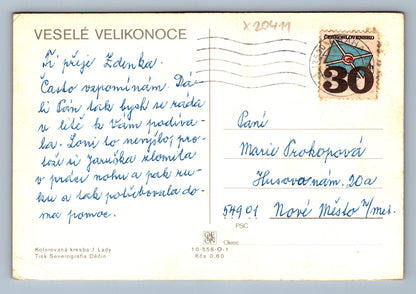 x 20411
VESELÉ VELIKONOCE
ČESKOSLOVENSKO
30
Ti přeje Zdenka.
Často vzpomínám. Dá-
li Pán tak bych se ráda
v létě k Vám podíva-
la. Loni to nevyšlo, pro-
tože si Jaruška zlomila
v práci nohu a pak ru-
ku a tak potřebovala do-
ma pomoc.
Paní
Marie Prokopová
Husova nám. 20a
54901 Nové Město n/Met.
PSČ
Kolorovaná kresba J. Lady
Tisk Severografia Děčín
10-558-O-1
Kčs 0,60
Orbis